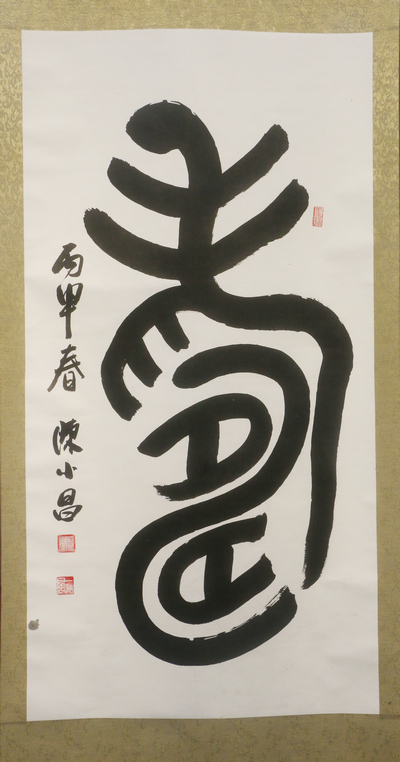 壽
丙申春 陳小昌